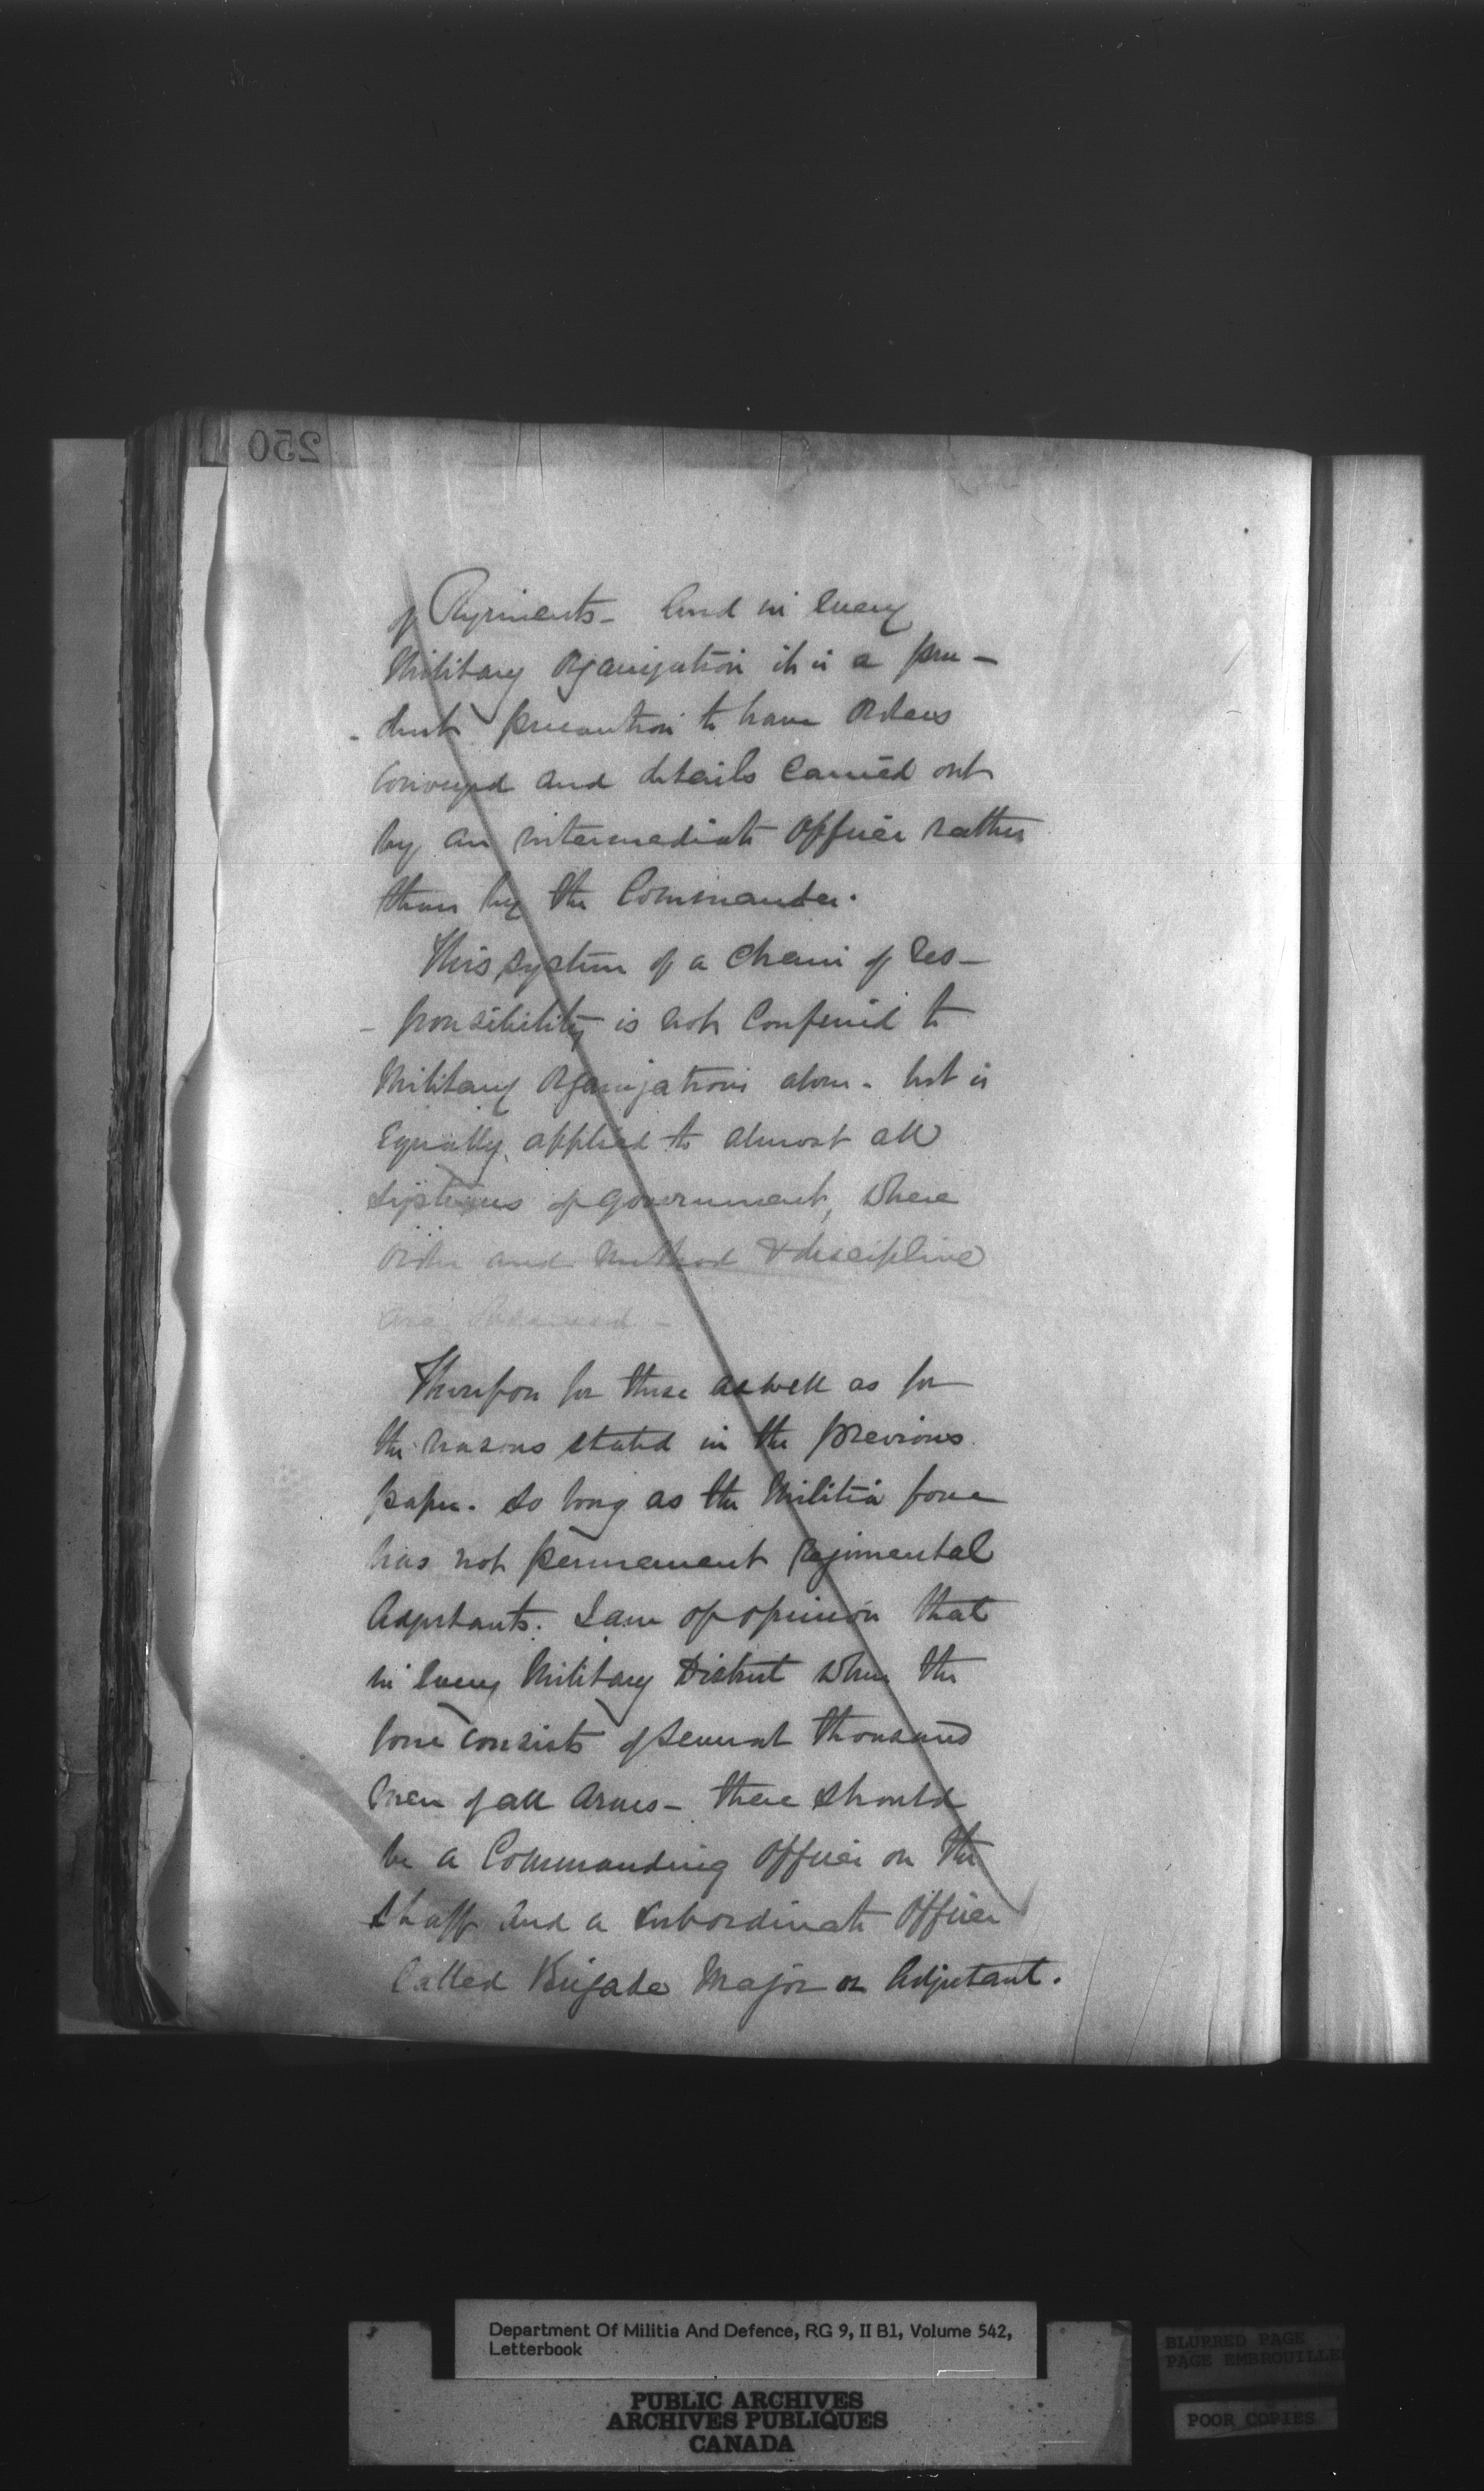 250
of Regiments - And in every
Military Organization it is a pru-
-dent precaution to have Orders
Conveyed and details Carried out
by an intermediate Officer rather
than by the Commander.
This system of a Chain of Res-
-ponsibility is not Confined to
Military Organizations alone - but is
Equally applied to almost all
Systems of Government, where
Order and Method & discipline
are
Therefore for these as well as for
the reasons stated in the previous
paper. So long as the Militia force
has not permanent Regimental
Adjutants. I am of opinion that
in every Military District where the
force consists of several thousand
Men of all Arms - there should
be a Commanding Officer on the
Staff and a Subordinate Officer
Called Brigade Major or Adjutant.
Department Of Militia And Defence, RG 9, II B1, Volume 542,
Letterbook
PUBLIC ARCHIVES
ARCHIVES PUBLIQUES
CANADA
BLURRED PAGE
PAGE EMBROUILLEE
POOR COPIES